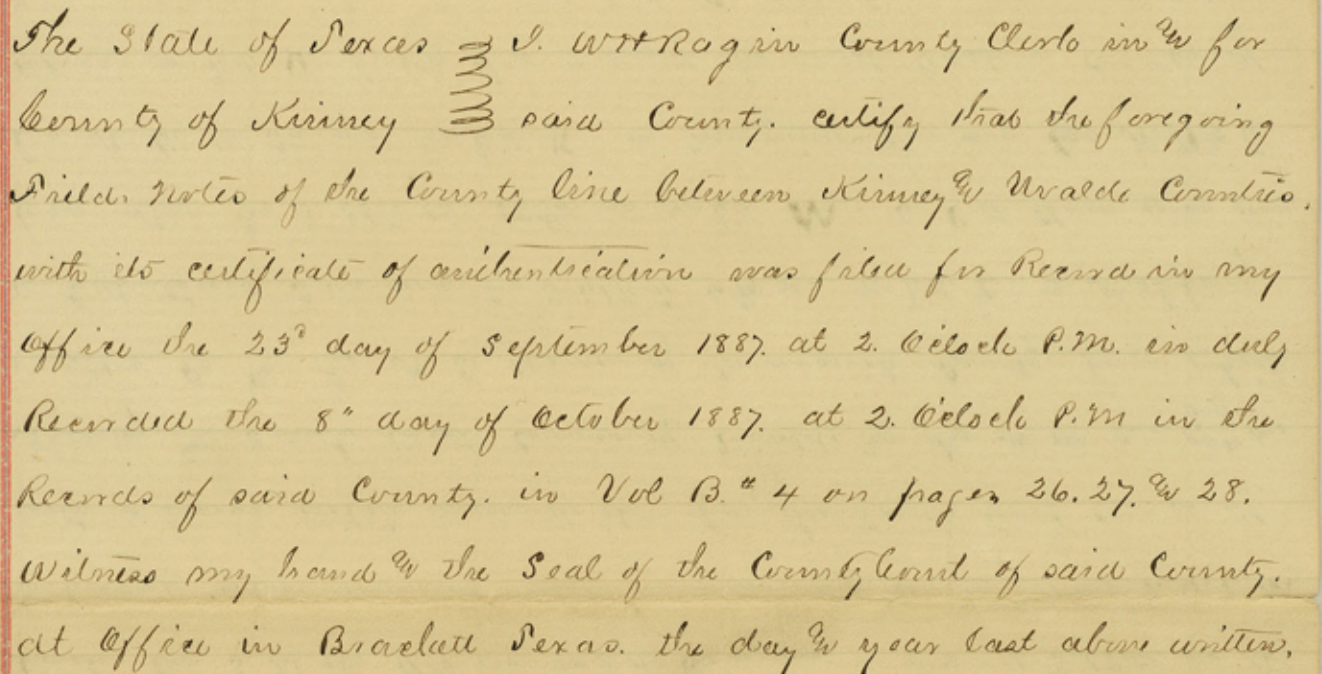 The State of Texas I. WH Ragin County Clerk in & for
County of Kinney said County. certify that the foregoing
Field Notes of the County line between Kinney & Uvalde Counties.
with its certificate of authentication was filed for Record in my
Office the 23d day of September 1887. at 2. Oclock P.M. in duly
Recorded the 8" day of October 1887. at 2. Oclock P.M in the
Records of said County. in Vol B." 4 on pages 26. 27. & 28.
Witness my hand & the Seal of the County Court of said County.
at Office in Brackett Texas. the day & year last above written.